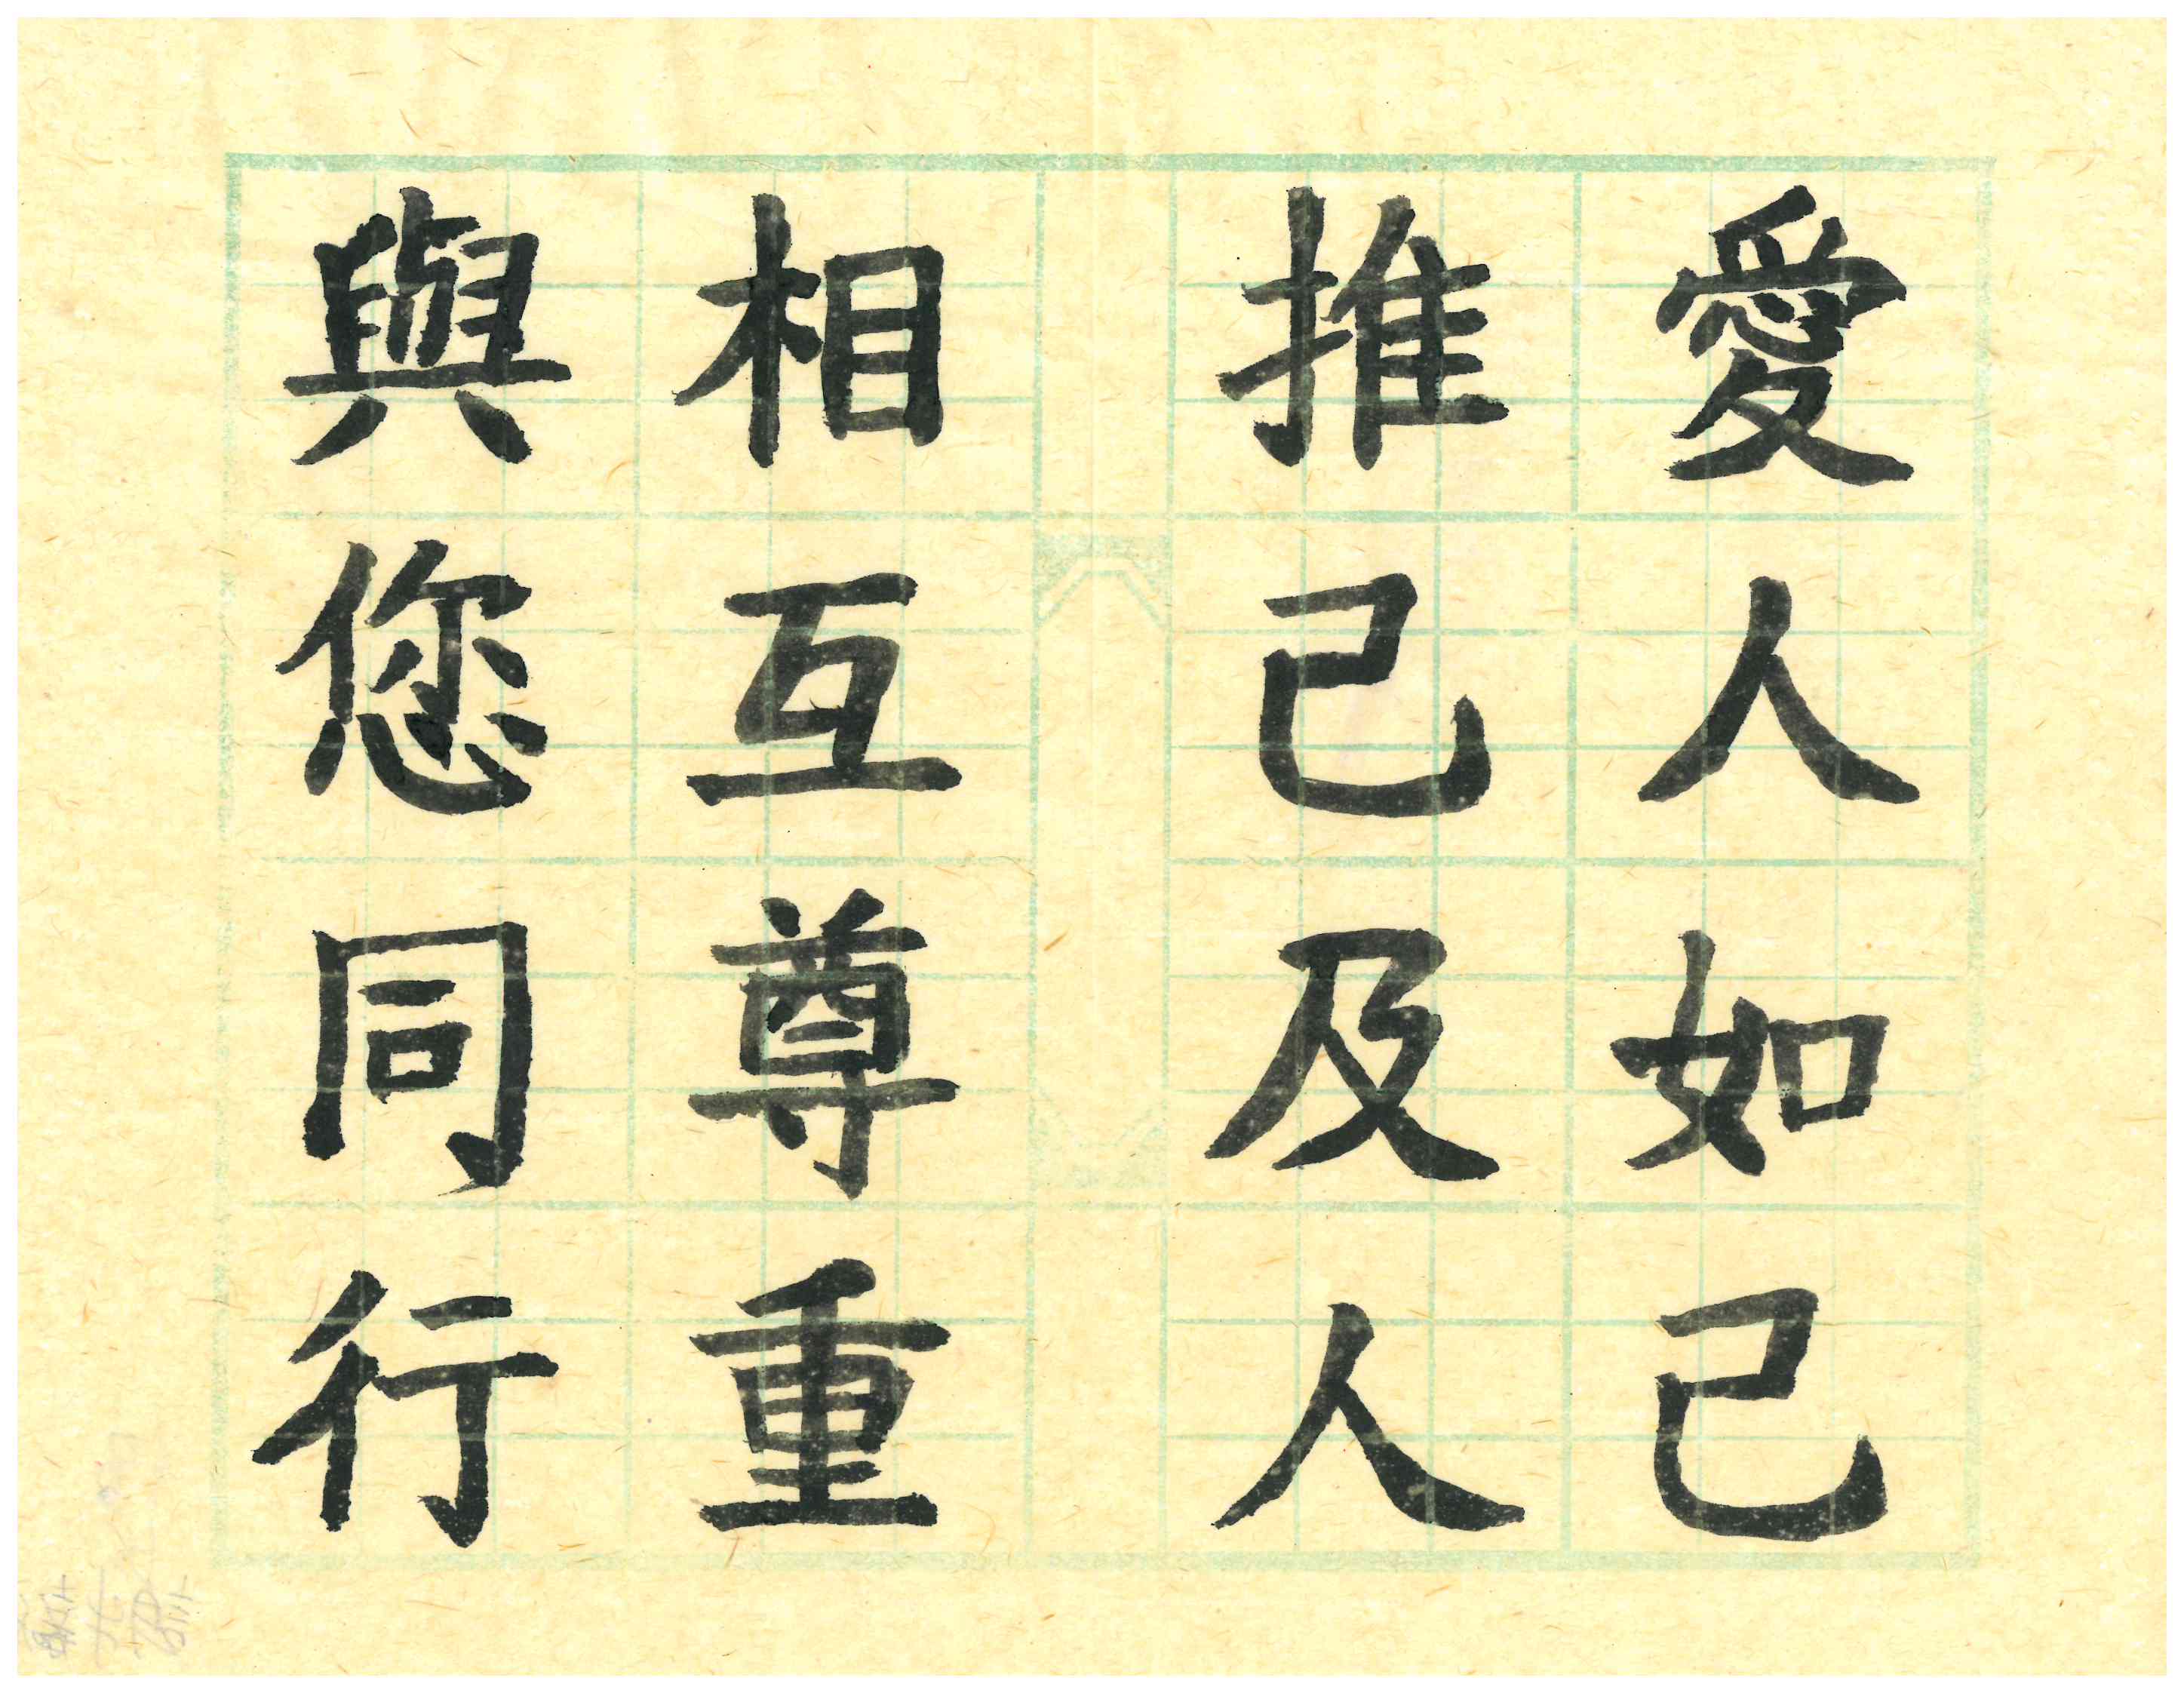 愛人如己
推己及人
相互尊重
與您同行